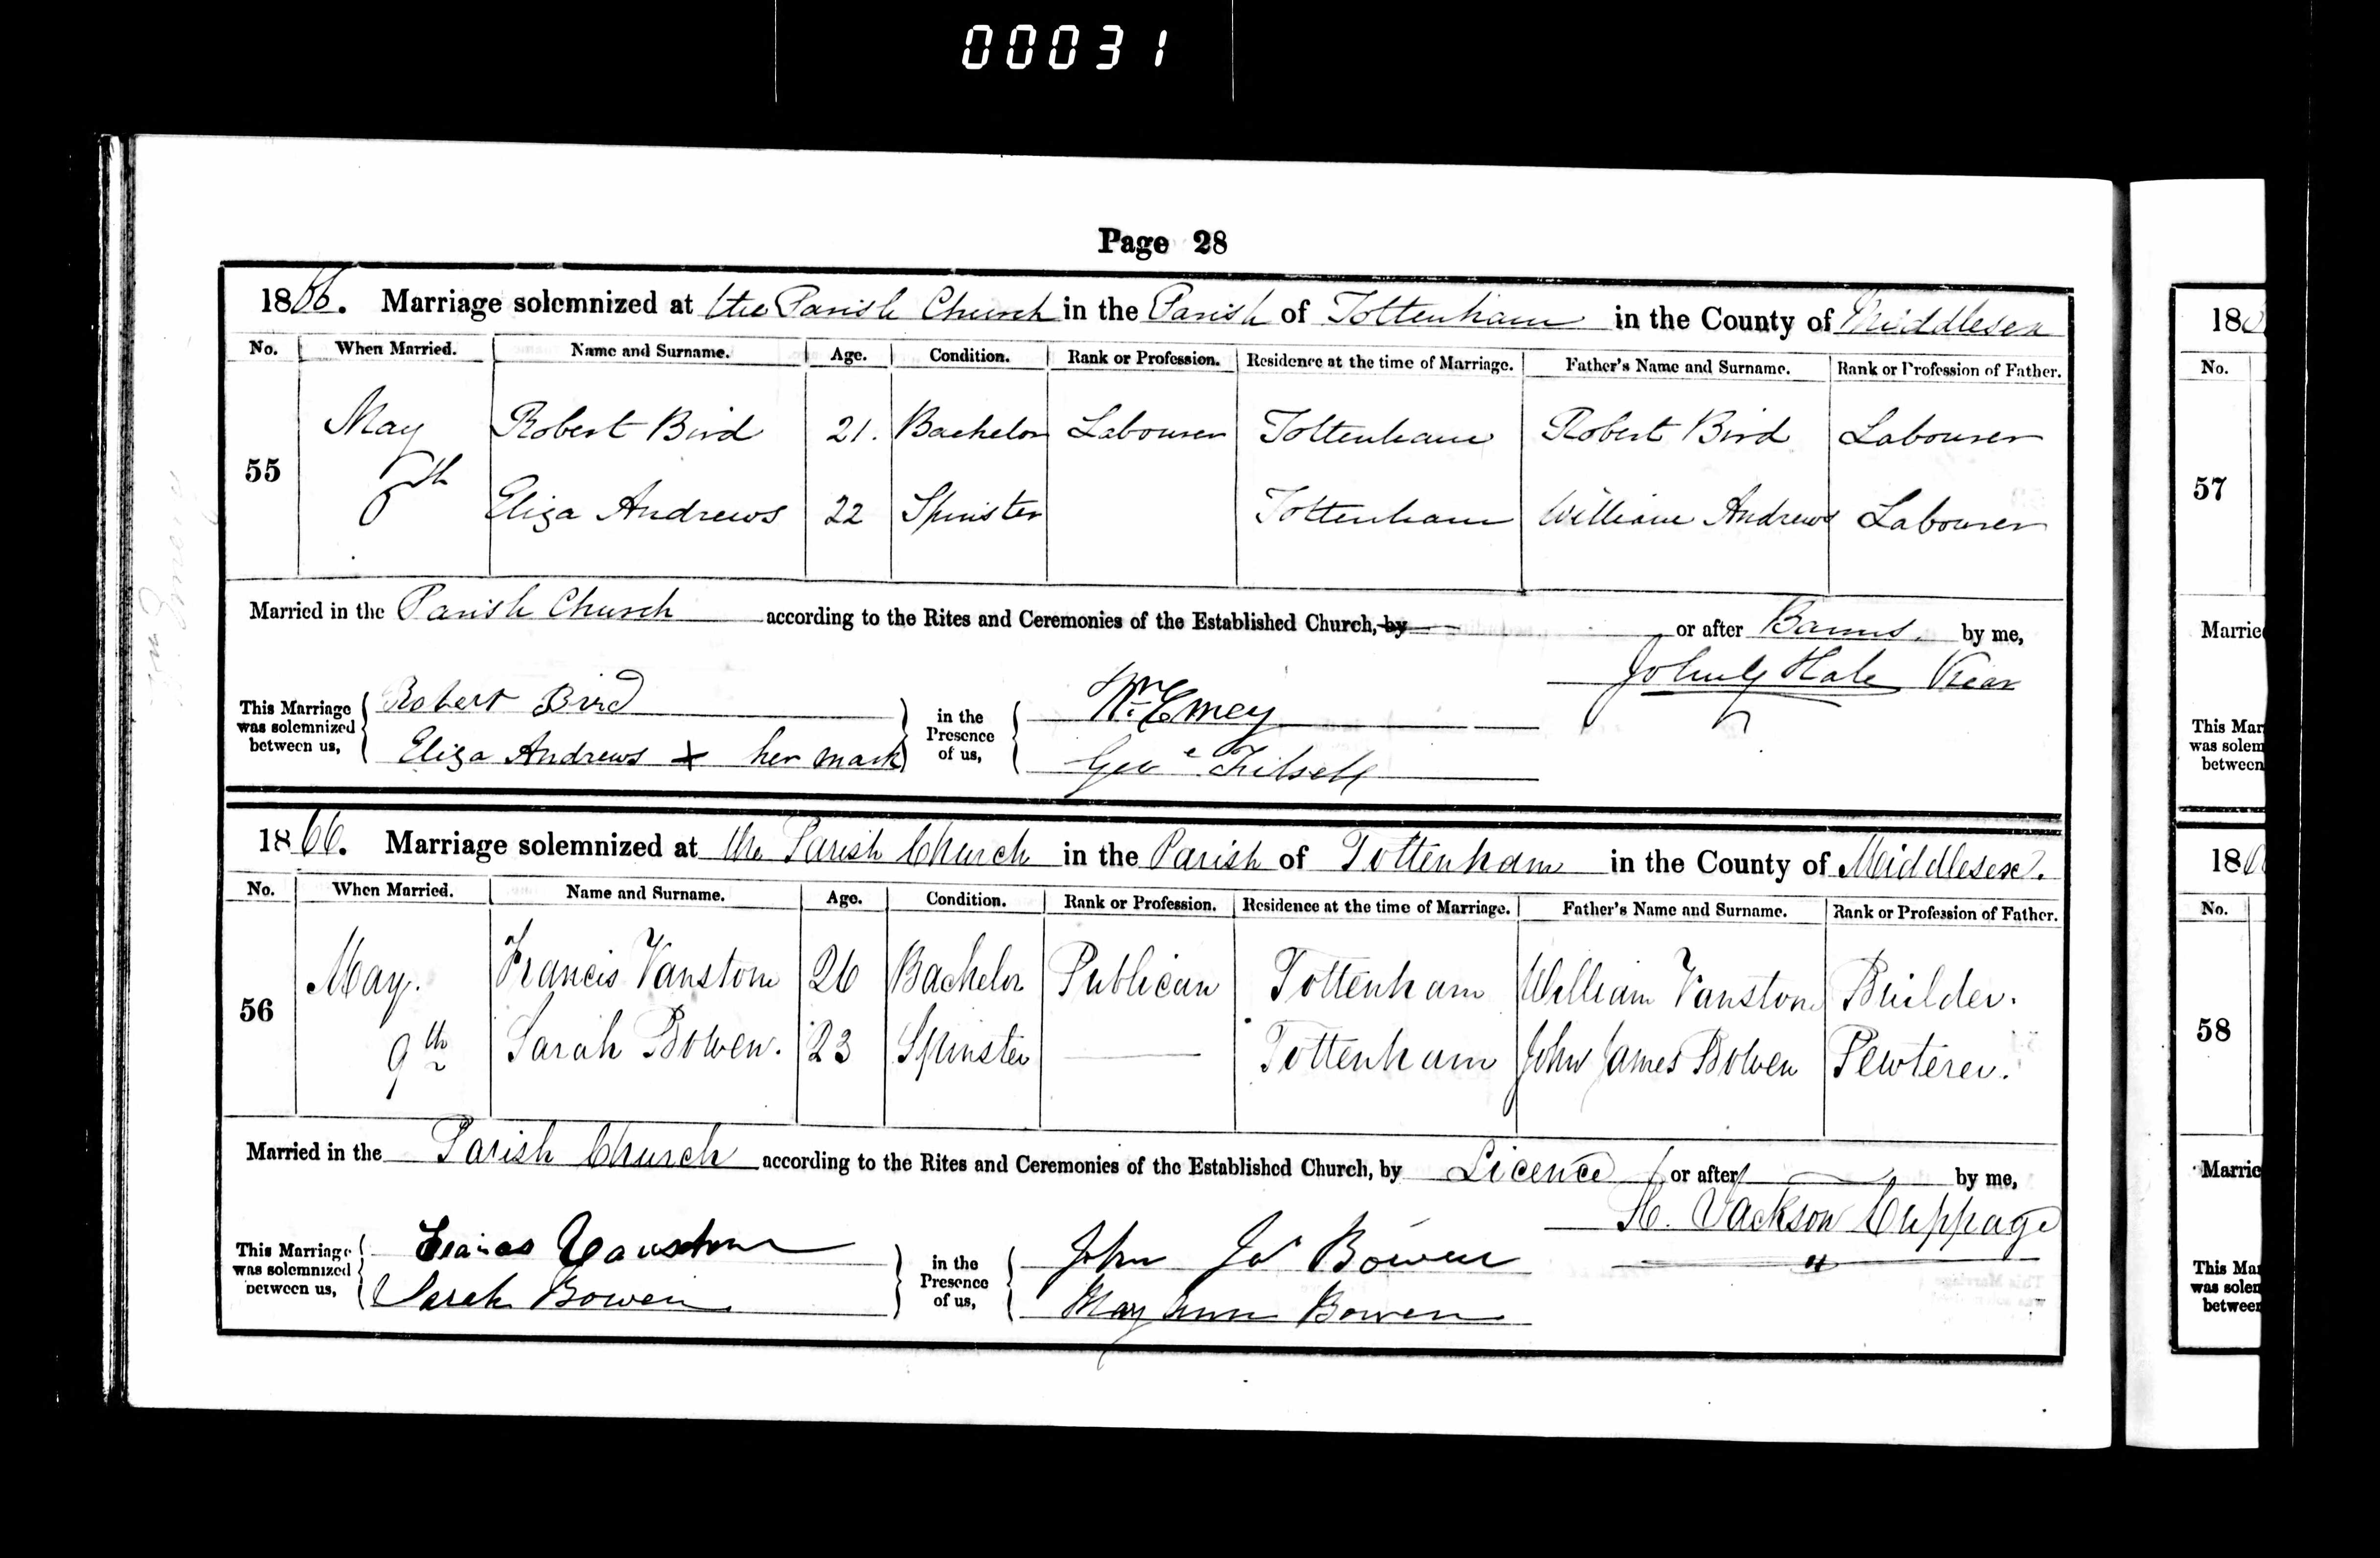 00031
Page 28
1866. Marriage solemnized at the Parish Church in the Parish of Tottenham in the County of Middlesex
No. When Married. Name and Surname. Age. Condition. Rank or Profession. Residence at the time of Marriage. Father's Name and Surname. Rank or Profession of Father.
55 May 6th
Robert Bird 21. Bachelor Labourer Tottenham Robert Bird Labourer
Eliza Andrews 22 Spinster Tottenham William Andrews Labourer
Married in the Parish Church according to the Rites and Ceremonies of the Established Church, by or after Banns. by me,
John G Hale Vicar
This Marriage was solemnized between us, Robert Bird
Eliza Andrews + her mark
in the Presence of us, Wm Emey
Geoe
1866. Marriage solemnized at the Parish Church in the Parish of Tottenham in the County of Middlesex.
No. When Married. Name and Surname. Age. Condition. Rank or Profession. Residence at the time of Marriage. Father's Name and Surname. Rank or Profession of Father.
56 May. 9th
Francis Vanstone 26 Bachelor Publican Tottenham William Vanstone Builder.
Sarah Bowen. 23 Spinster Tottenham John James Bowen Pewterer.
Married in the Parish Church according to the Rites and Ceremonies of the Established Church, by Licence or after by me,
H. Jackson Cuppage
This Marriage was solemnized between us, Francis Vanstone
Sarah Bowen
in the Presence of us, John Jas Bowen
Mary Ann Bowen
18
No.
57
Marrie
This Mar
was solem
between
18
No.
58
Marrie
This Mar
was solem
between